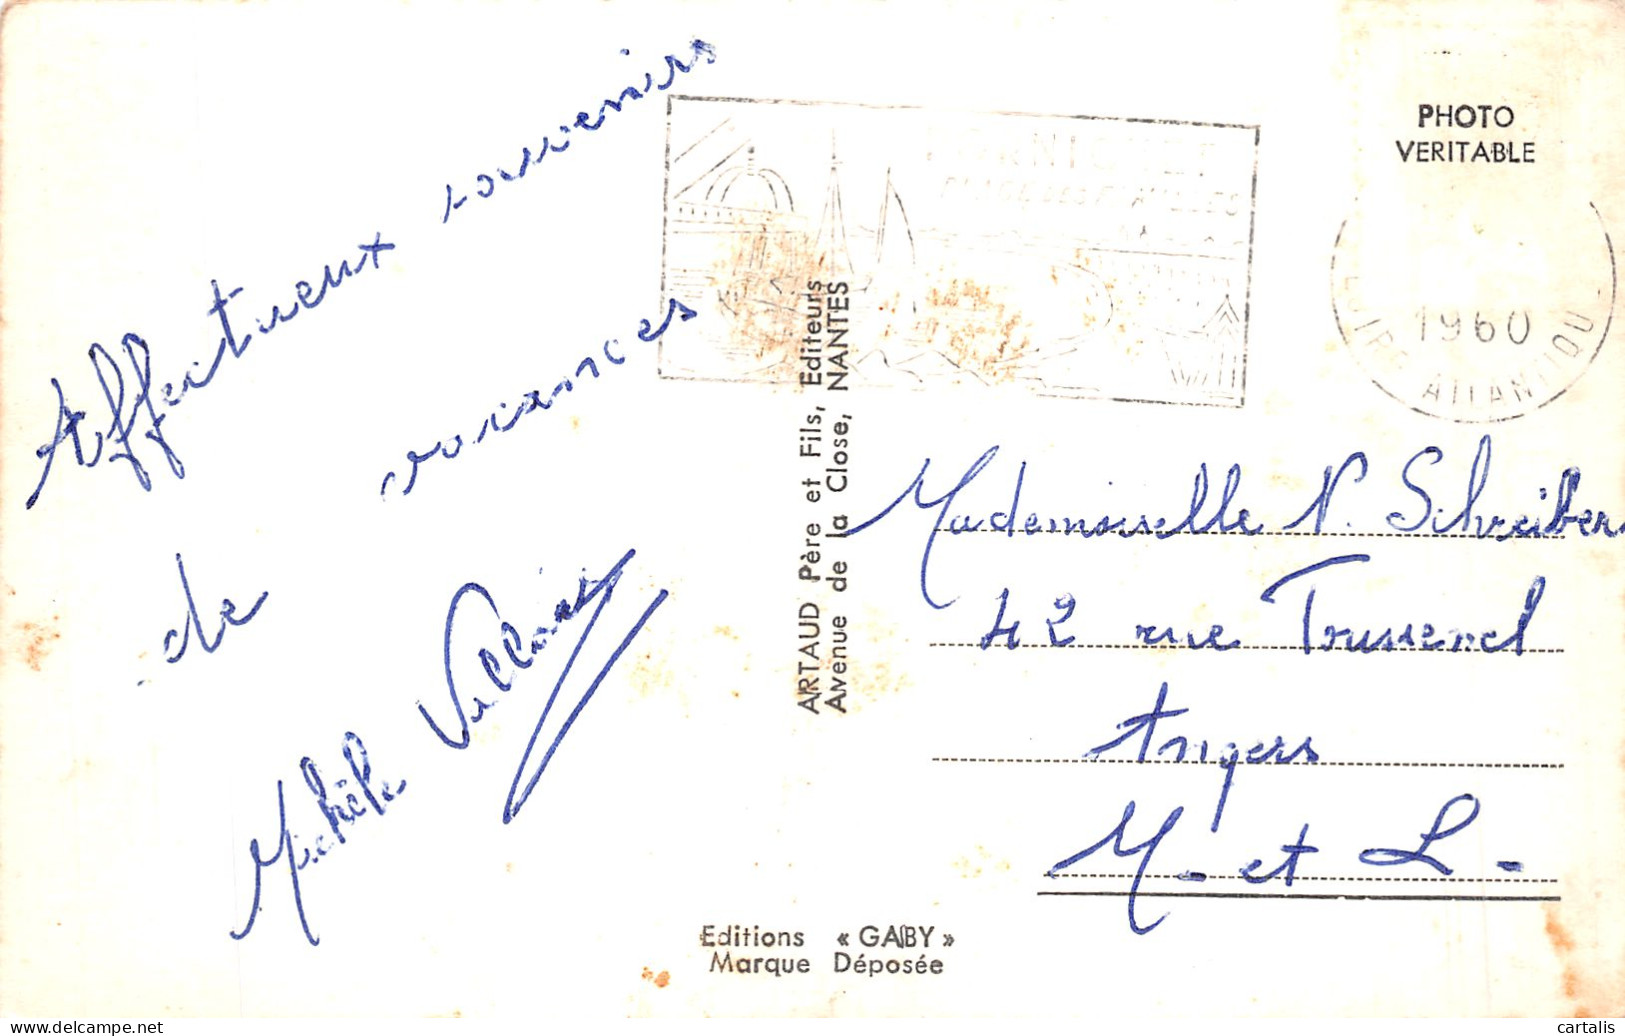 Affectueux souvenirs
de vacances
Michèle
ARTAUD Père et Fils, Editeurs
Avenue de la Close, NANTES
PHOTO
VERITABLE
1960
LOIRE ATLANTIQU
Mademoiselle N. Schreiber
42 rue Toussenel
Angers
M- et L-
Editions « GABY »
Marque Déposée
delcampe.net
cartalis